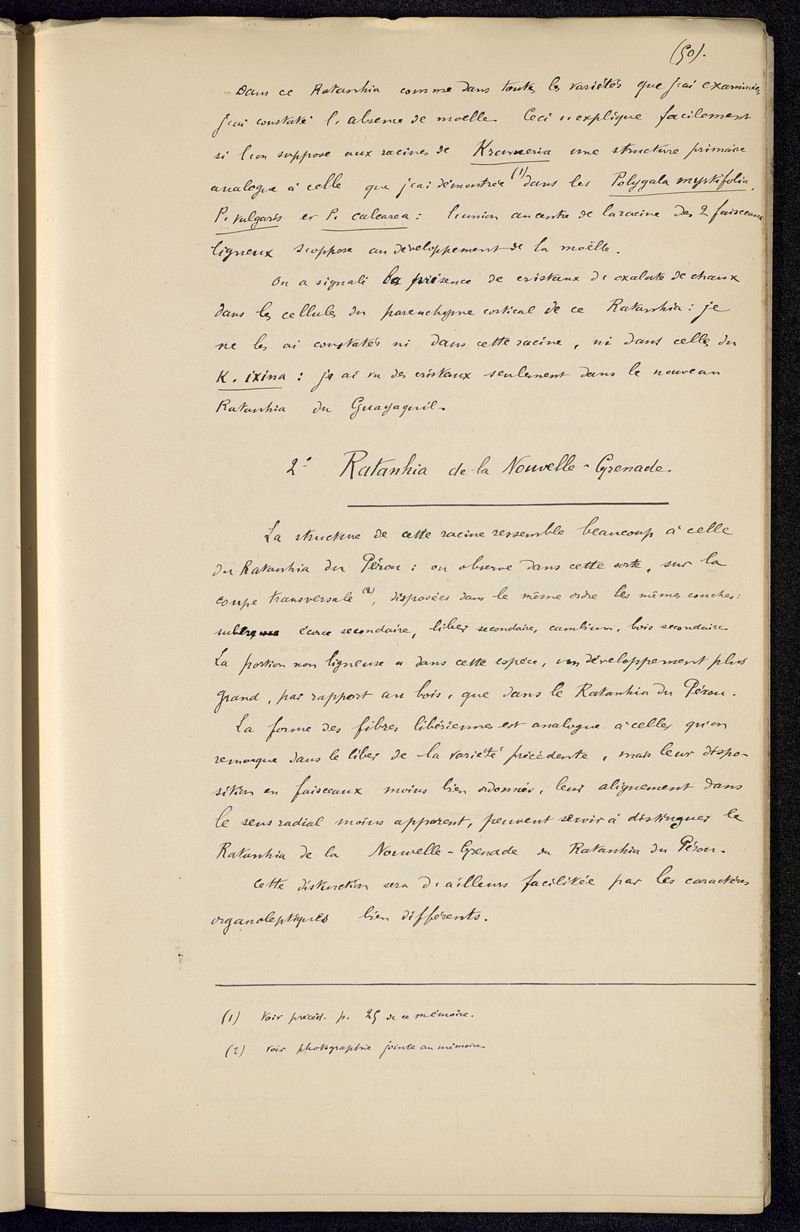 (50).
Dans ce Ratanhia comme dans toutes les variétés que j'ai examinées
j'ai constaté l'absence de moelle. Ceci s'explique facilement
si l'on suppose aux racines de Krameria une structure primaire
analogue à celle que j'ai démontrée (1) dans les Polygala myrtifolia,
P. vulgaris et P. calcarea : l'union au centre de la racine des 2 faisceaux
ligneux s'oppose au développement de la moëlle.
On a signalé la présence de cristaux de oxalate de chaux
dans les cellules du parenchyme cortical de ce Ratanhia : je
ne les ai constatés ni dans cette racine, ni dans celles du
K. ixina : j'ai vu des cristaux seulement dans le nouveau
Ratanhia du Guayaquil.
2° Ratanhia de la Nouvelle-Grenade.
La structure de cette racine ressemble beaucoup à celle
du Ratanhia du Pérou : on observe dans cette sorte, sur la
coupe transversale (2), disposées dans le même ordre les mêmes couches :
écorce secondaire, liber secondaire, cambium, bois secondaire.
La portion non ligneuse a dans cette espèce, un développement plus
grand, par rapport au bois, que dans le Ratanhia du Pérou.
La forme des fibres libériennes est analogue à celles qu'on
remarque dans le liber de la variété précédente, mais leur dispo-
sition en faisceaux moins bien ordonnés, leur alignement dans
le sens radial moins apparent, peuvent servir à distinguer le
Ratanhia de la Nouvelle-Grenade du Ratanhia du Pérou.
Cette distinction sera d'ailleurs facilitée par les caractères
organoleptiques bien différents.
(1) Voir précéd. p. 25 de ce mémoire.
(2) Voir photographie jointe au mémoire.